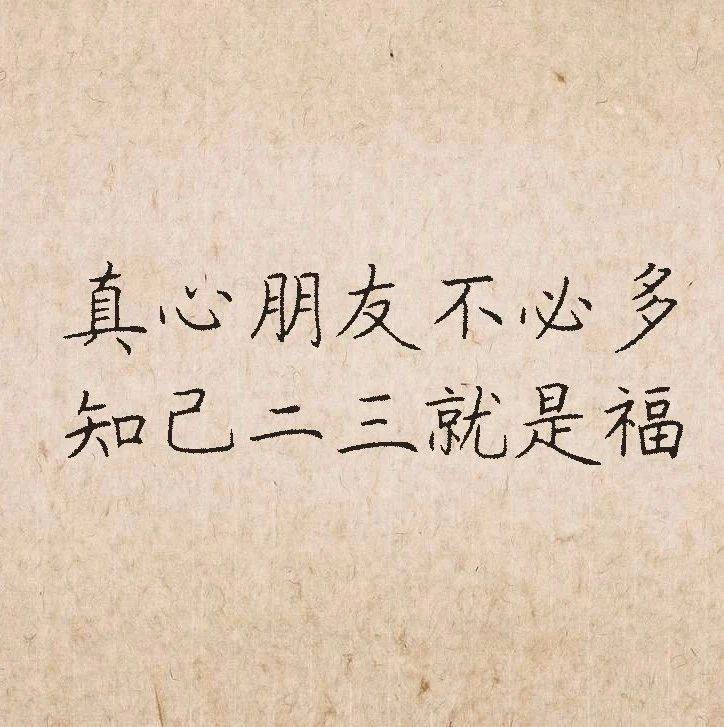 真心朋友不必多
知己二三就是福